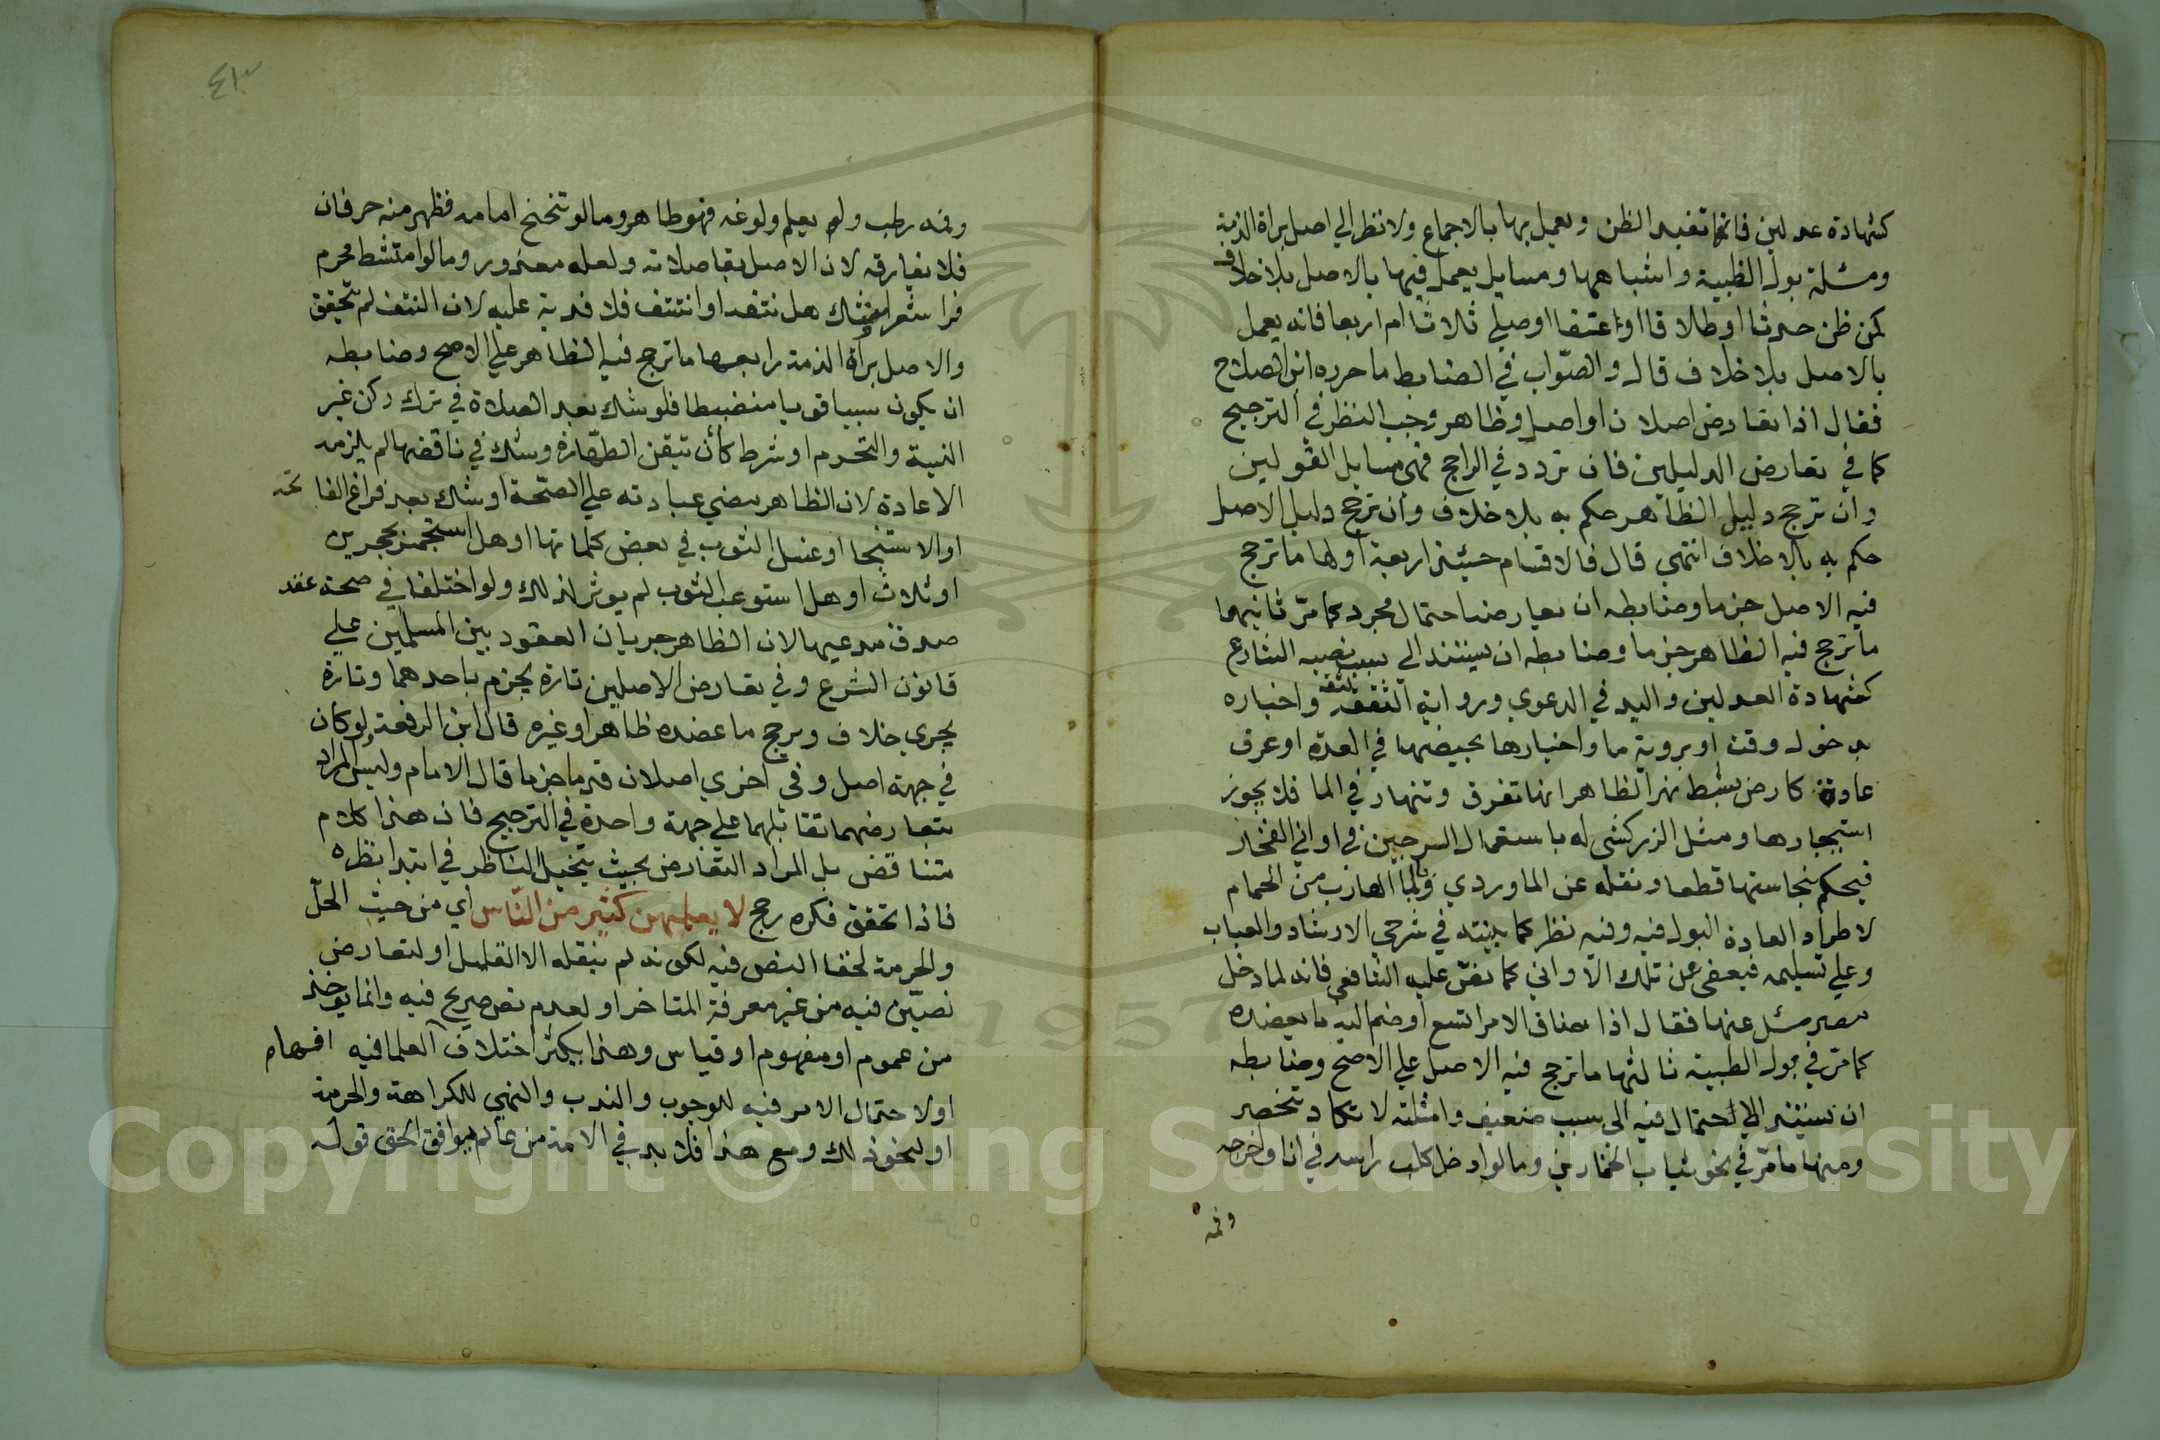 كشهادة عدلين فانها تفيد الظن ويعمل بها بالاجماع ولا نظر الي اصل براة الذمة
ومسئلة بول الظبية واشباهها ومسايل يعمل فيها بالاصل بلا خلاف
كمن ظن حدثا او طلاقا او عتقا او صلي ثلاثا ام اربعا فانه يعمل
بالاصل بلا خلاف قال والصواب في الضابط ما حرره ابن الصلاح
فقال اذا تعارض اصلان او اصل وظاهر وجب النظر في الترجيح
كما في تعارض الدليلين فان تردد في الراجح فهي مسايل القولين
وان ترجح دليل الظاهر حكم به بلا خلاف وان ترجح دليل الاصل
حكم به بلا خلاف انتهي قال فالاقسام حينئذ اربعة اولها ما ترجح
فيه الاصل جزما وضابطه ان يعارضه احتمال مجرد كما مر ثانيهما
ما ترجح فيه الظاهر جزما وضابطه ان يستند الي سبب نصبه الشارع
كشهادة العدلين واليد في الدعوي ورواية الثقة واخباره
بدخول وقت او بروية ما واخبارها بحيضها في العدة او عرف
عادة كارض بشط نهر الظاهر انها تغرق وتنهار في الما فلا يجوز
استيجارها ومثل الزركشي له باستعمال السرجين في اواني الفخار
فيحكم بنجاستها قطعا ونقله عن الماوردي وبالما الهارب من الحمام
لاطراد العادة البول فيه وفيه نظر كما بينته في شرحي الارشاد والعباب
وعلي تسليمه فيعفي عن تلك الاواني كما نص عليه الشافعي فانه لما دخل
مصر سئل عنها فقال اذا ضاق الامر اتسع او ضم اليه ما يعضده
كما مر في بول الظبية ثالثها ما ترجح فيه الاصل علي الاصح وضابطه
ان يستند الاحتمال فيه الى سبب ضعيف وامثلته لا تكاد تنحصر
ومنها ما مر في نحو ثياب الخمارين وما لو ادخل كلب راسه في انا واخرجه
وفمه
٤٣
وفمه رطب ولم يعلم ولوغه فهو طاهر وما لو تنحنح امامه فظهر منه حرفان
فلا يفارقه لان الاصل بقا صلاته ولعله معذور وما لو امتشط محرم
فراى شعرا فشك هل نتفه او انتتف فلا فدية عليه لان النتف لم يتحقق
والاصل براة الذمة رابعها ما ترجح فيه الظاهر علي الاصح وضابطه
ان يكون سببا قويا منضبطا فلو شك بعد الصلاة في ترك ركن غير
النية والتحرم او شرط كأن تيقن الطهارة وشك في ناقضها لم يلزمه
الاعادة لان الظاهر مضي عبادته علي الصحة او شك بعد فراغ الفاتحة
او الاستنجا او غسل الثوب في بعض كلماتها او هل استجمر بحجرين
او ثلاث او هل استوعب الثوب لم يوثر لذلك ولو اختلفا في صحة عقد
صدق مدعيها لان الظاهر جريان العقود بين المسلمين علي
قانون الشرع وفي تعارض الاصلين تارة يجزم باحدهما وتارة
يجري خلاف ويرجح ما عضده ظاهر او غيره قال ابن الرفعة ولو كان
في جهة اصل وفي اخري اصلان قدما جزما قال الامام وليس المراد
بتعارضهما تقابلهما علي جهة واحدة في الترجيح فان هذا كلام
متناقض بل المراد التعارض بحيث يتخيل الناظر في ابتدا نظره
فاذا تحقق فكره رجح لا يعلمهن كثير من الناس اي من حيث الحل
والحرمة لخفا النص فيه لكونه لم ينقله الا القليل او لتعارض
نصين فيه من غير معرفة المتاخر او لعدم نص صريح فيه وانما يوخذ
من عموم او مفهوم او قياس وهذا يكثر اختلاف العلما فيه افهام
او لاحتمال الامر فيه للوجوب والندب والنهي للكراهة والحرمة
او لنحو ذلك ومع هذا فلا بد في الامة من عالم يوافق الحق قوله
1957
Copyright © King Saud University